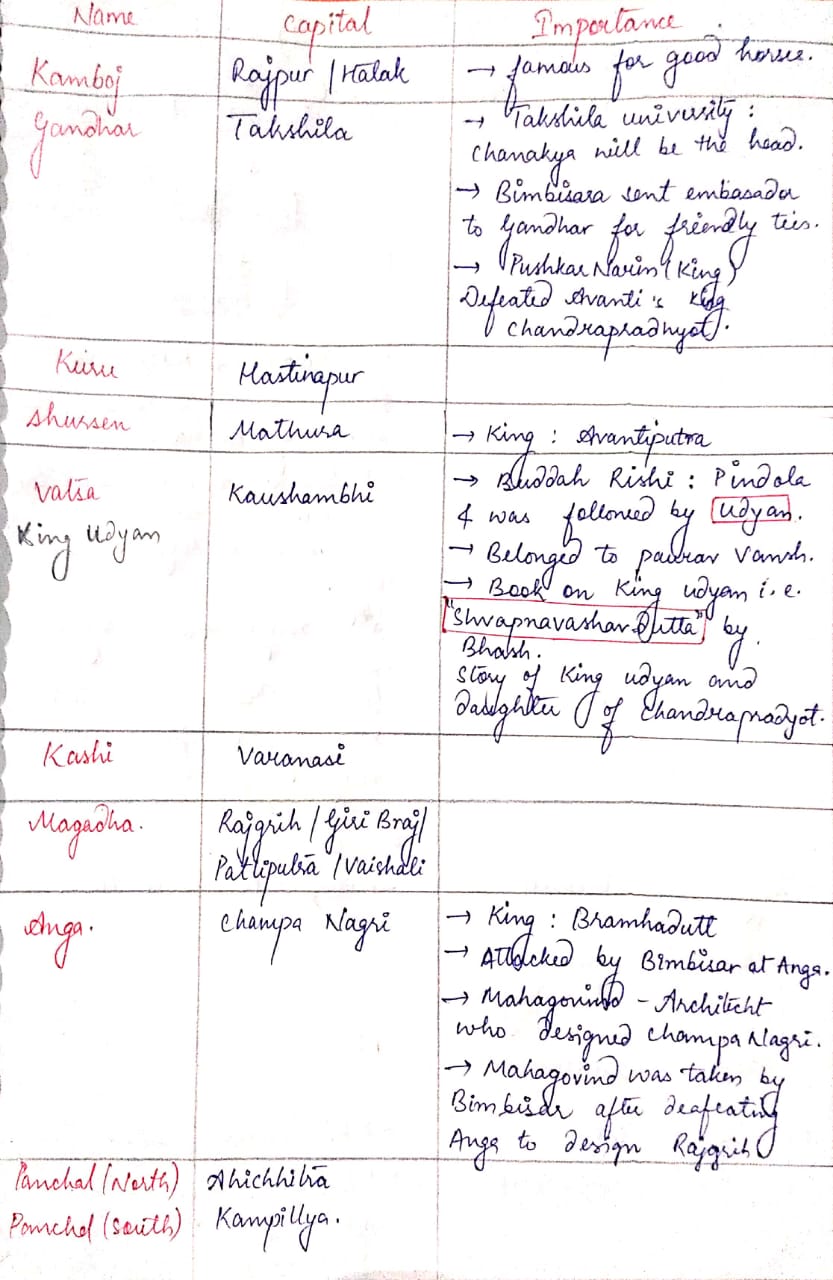 Name Capital Importance.
Kamboj Rajpur / Halak → famous for good horse.
Gandhar Takshila → Takshila university :
Chanakya will be the head.
→ Bimbisara sent embasador
to Gandhar for friendly ties.
→ Pushkar Narin (King)
Defeated Avanti's King
Chandrapradhyot.
Kuru Hastinapur
Shursen Mathura → King : Avantiputra
Vatsa Kaushambhi → Buddah Rishi : Pindola
King Udyan & was followed by Udyan.
→ Belonged to paurav Vansh.
→ Book on King udyan i.e.
"Shvapnavashav Dutta" by
Bhash.
Story of King udyan and
daughter of Chandrapradyot.
Kashi Varanasi
Magadha. Rajgrih / Giri Braj/
Patliputra / Vaishali
Anga. Champa Nagri → King : Bramhadutt
→ Attacked by Bimbisar at Anga.
→ Mahagovind - Architecht
who designed Champa Nagri.
→ Mahagovind was taken by
Bimbisar after deafeating
Anga to design Rajgrih
Panchal (North) Ahichhitra
Panchal (South) Kampillya.